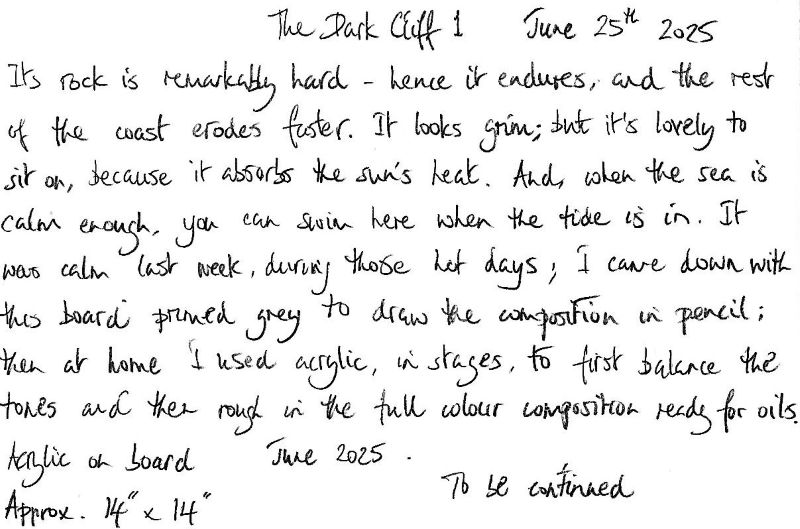 The Dark Cliff 1 June 25th 2025
Its rock is remarkably hard - hence it endures, and the rest
of the coast erodes faster. It looks grim; but it's lovely to
sit on, because it absorbs the sun's heat. And, when the sea is
calm enough, you can swim here when the tide is in. It
was calm last week, during those hot days; I came down with
this board primed grey to draw the composition in pencil;
then at home I used acrylic, in stages, to first balance the
tones and then rough in the full colour composition ready for oils.
Acrylic on board June 2025.
To be continued
Approx. 14" x 14"